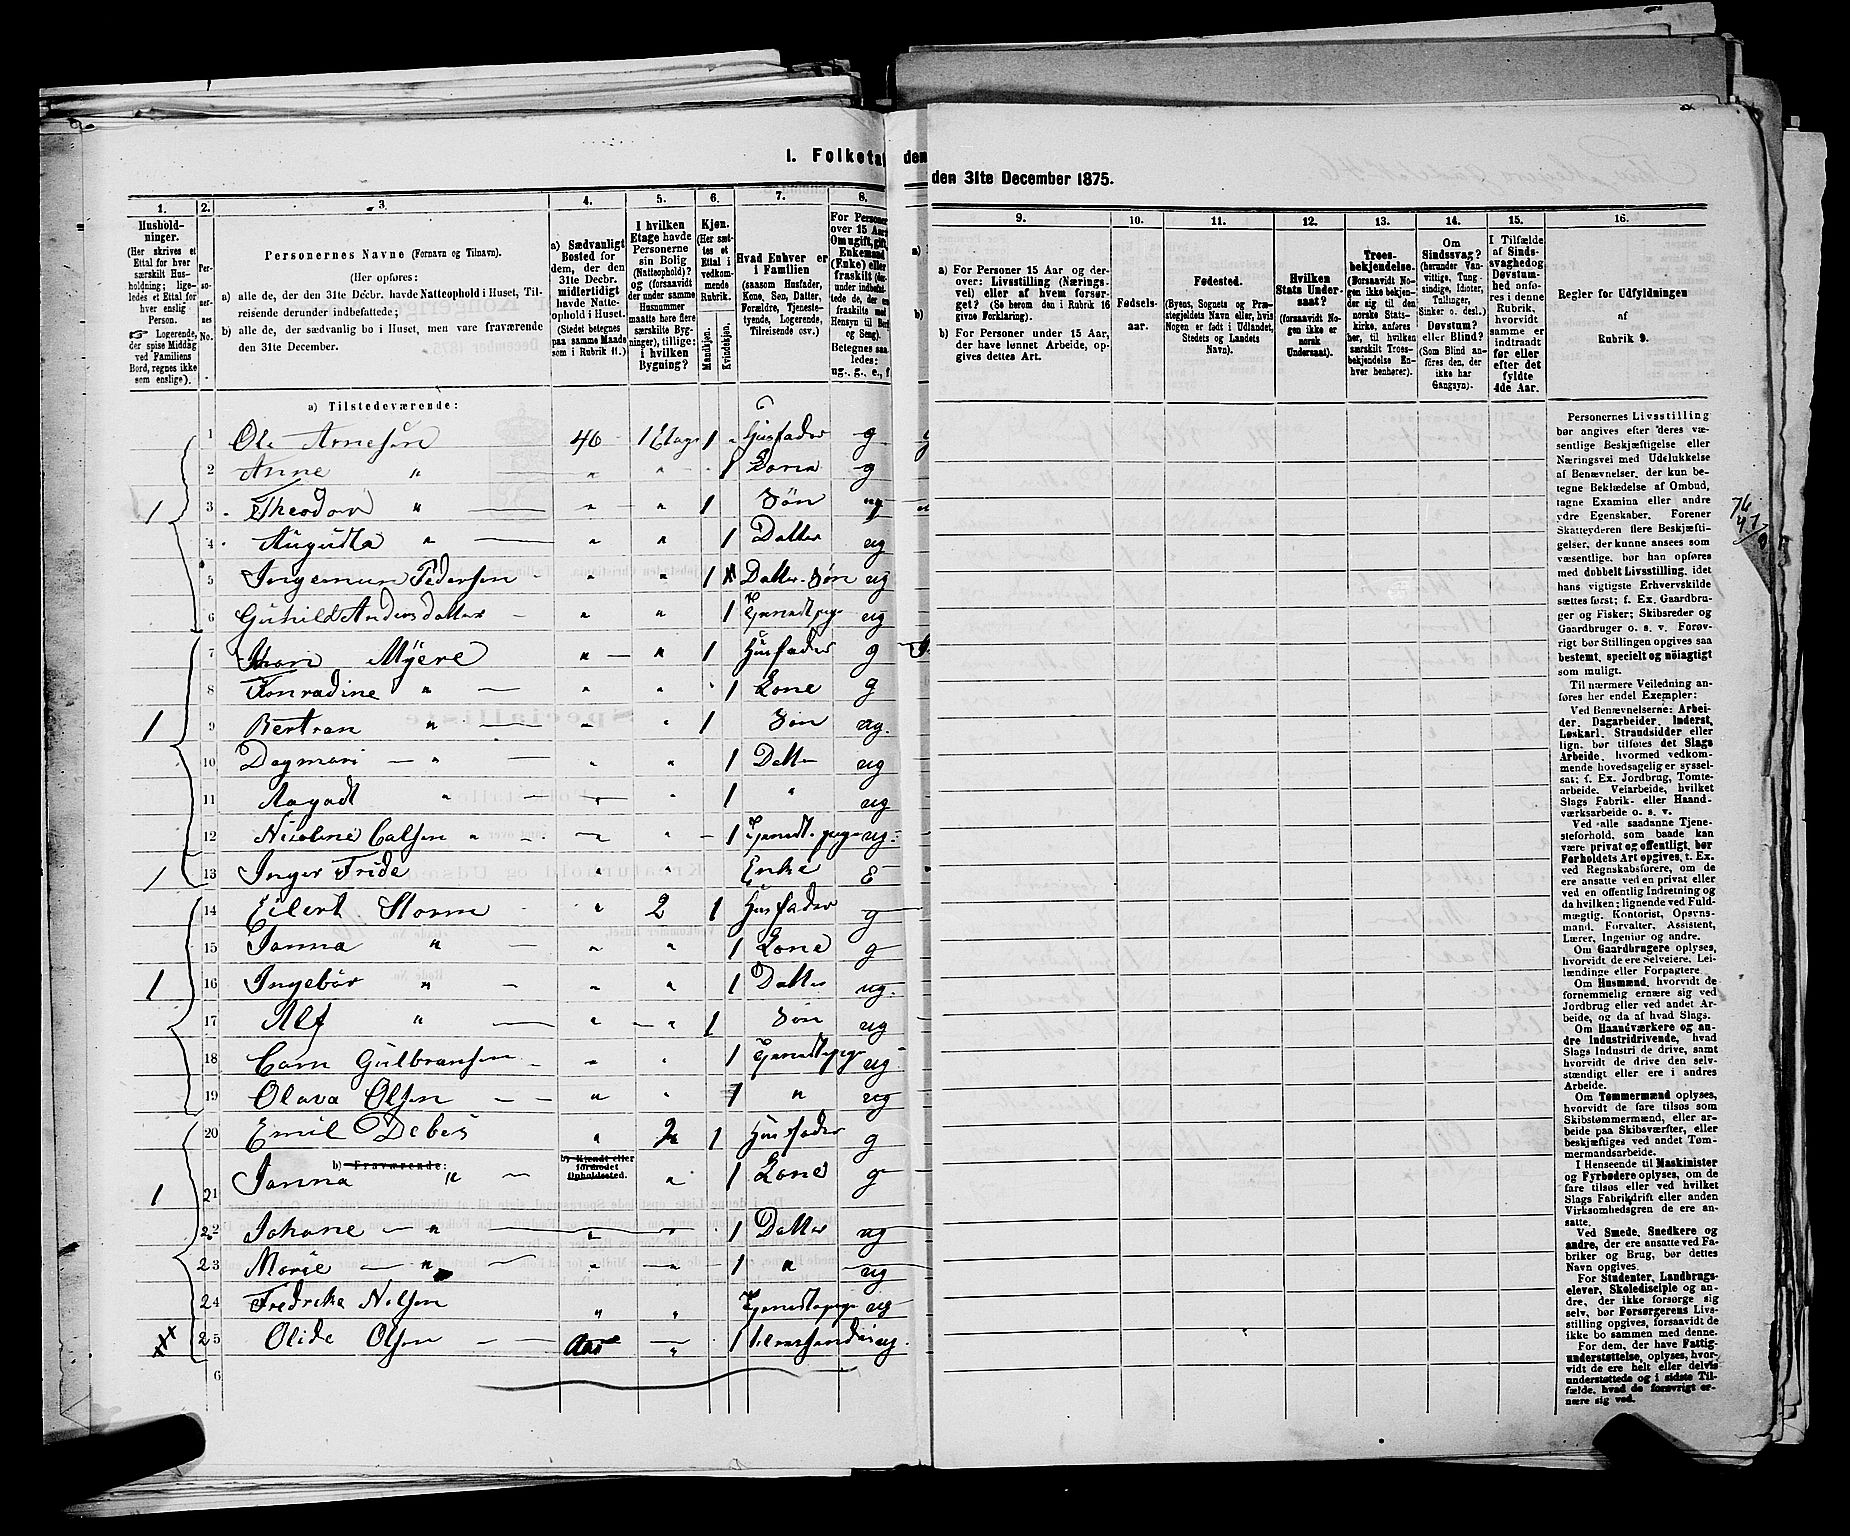 I. Folketa den
den 31te December 1875.
1. 2. 3. 4. 5. 6. 7. 8.
9. 10. 11. 12. 13. 14. 15. 16.
Husholdninger.
(Her skrives et Ettal for hver særskilt Husholdning; ligeledes et Ettal for hver enslig Person.
Logerende, der spise Middag ved Familiens Bord, regnes ikke som enslige).
Personernes No.
Personernes Navne (Fornavn og Tilnavn).
(Her opføres:
a) alle de, der den 31te Decbr. havde Natteophold i Huset, Tilreisende derunder indbefattede;
b) alle de, der sædvanlig bo i Huset, men vare fraværende den 31te December.
a) Sædvanligt Bosted for dem, der den 31te Decbr. midlertidigt havde Natteophold i Huset.
(Stedet betegnes paa samme Maade som i Rubrik 11.)
I hvilken Etage havde Personerne sin Bolig (Natteophold)? og (forsaavidt der under samme Husnummer maatte høre flere særskilte Bygninger), tillige: i hvilken Bygning?
Kjøn.
(Her sættes et Ettal i vedkommende Rubrik.
Mandkjøn.
Kvindekjøn.
Hvad Enhver er i Familien
(saasom Husfader, Kone, Søn, Datter, Forældre, Tjenestetyende, Logerende, Tilreisende osv.)
For Personer over 15 Aar: Om ugift, gift, Enkemand (Enke) eller fraskilt
Betegnes saaledes:
ug., g., e., f
a) For Personer 15 Aar og derover: Livsstilling (Næringsvei) eller af hvem forsørget? (Se herom den i Rubrik 16 givne Forklaring).
b) For Personer under 15 Aar, der have lønnet Arbeide, opgives dettes Art.
Fødselsaar.
Fødested.
(Byens, Sognets og Præstegjeldets Navn eller, hvis Nogen er født i Udlandet, Stedets og Landets Navn).
Hvilken Stats Undersaat?
(forsaavidt Nogen ikke er norsk Undersaat).
Troesbekjendelse.
(Forsaavidt Nogen ikke bekjender sig til den norske Statskirke, anføres her, til hvilken særskilt Trosbekjendelse Enhver henhører).
Om Sindssvag?
(herunder Vanvittige, Tungsindige, Idioter, Tullinger, Sinker o. desl.)
Døvstum? eller Blind?
(Som Blind anføres den, der ikke har Gangsyn).
I Tilfælde af Sindssvaghed og Døvstumhed anføres i denne Rubrik, hvorvidt samme er indtraadt før eller efter det fyldte 4de Aar.
Regler for Udfyldningen af Rubrik 9.
a) Tilstedeværende:
1 Ole Arnesen 46 1 Etage 1 Husfader g
2 Anne " " " 1 Kone g
1 3 Theodor " " " 1 Søn ug
4 Augusta " " " 1 Datter ug
5 Ingemun Pedersen " " 1 Datter-Søn ug
6 Gunild Andersdatter " " 1 Tjenestpige ug
7 Myere " " 1 Husfader g
8 Konradine " " " 1 Kone g
1 9 Bertran " " " 1 Søn ug.
10 Dagmari " " " 1 Datter ug
11 " " " 1 " ug
12 Nicoline Calsen " " " 1 Tjenestepige ug.
1 13 Inger Fride " " Enke E
14 Eilert Storm " 2 1 Husfader g
15 Janna " " " 1 Kone g
1 16 Ingebör " " " 1 Datter ug.
17 Alf " " " 1 Søn ug
18 Gulbransen " " 1 Tjenestepige ug
19 Olava Olsen " " 1 " ug
20 Emil Debes " 2 1 Husfader g
b) Fraværende: b) Kjendt eller formodet Opholdssted.
1 21 Janna " " 1 Kone g
22 Johane " " " 1 Datter ug
23 Marie " " " 1 " ug
24 Fredrika Nilsen " " Tjenestepige ug
25 Olide Olsen Aas " 1 tilreisende ug.
6
Personernes Livsstilling bør angives efter deres væsentlige Beskjæftigelse eller Næringsvei med Udelukkelse af Benævnelser, der kun betegne Beklædelse af Ombud, tagne Examina eller andre ydre Egenskaber. Forener Skatteyderen flere Beskjæftigelser, der kunne ansees som væsentlige, bør han opføres med dobbelt Livsstilling, idet hans vigtigste Erhvervskilde sættes først; f. Ex. Gaardbruger og Fisker; Skibsreder og Gaardbruger o. s. v. Forøvrigt bør Stillingen opgives saa bestemt, specielt og nöiagtigt som muligt.
Til nærmere Veiledning anføres her endel Exempler:
Ved Benævnelserne: Arbeider, Dagarbeider, Inderst, Løskarl, Strandsidder eller lign. bør tilføies det Slags Arbeide, hvormed vedkommende hovedsagelig er sysselsat; f. Ex. Jordbrug, Tomtearbeide, Veiarbeide, hvilket Slags Fabrik- eller Haandværksarbeide o. s. v.
Ved alle saadanne Tjenesteforhold, som baade kan være privat og offentligt, bør Forholdets Art opgives, t. Ex. ved Regnskabsførere, om de ere ansatte ved en privat eller ved en offentlig Indretning og da hvilken; lignende ved Fuldmægtig, Kontorist, Opsynsmand, Forvalter, Assistent, Lærer, Ingeniør og andre.
Om Gaardbrugere oplyses, hvorvidt de ere Selveiere, Leilændinge eller Forpagtere.
Om Husmænd, hvorvidt de fornemmelig ernære sig ved Jordbrug eller ved andet Arbeide, og da af hvad Slags.
Om Haandværkere og andre Industridrivende, hvad Slags Industri de drive, samt hvorvidt de drive den selvstændigt eller ere i andres Arbeide.
Om Tømmermænd oplyses, hvorvidt de fare tilsøs som Skibstømmermænd, eller arbeide paa Skibsværfter, eller beskjæftiges ved andet Tømmermandsarbeide.
I Henseende til Maskinister og Fyrbødere oplyses, om de fare tilsøs eller ved hvilket Slags Fabrikdrift eller anden Virksomhedsgren de ere ansatte.
Ved Smede, Snedkere og andre, der ere ansatte ved Fabriker og Brug, bør dettes Navn opgives.
For Studenter, Landbrugselever, Skoledisciple og andre, der ikke forsørge sig selv, bør Forsørgerens Livsstilling opgives, forsaavidt de ikke bo sammen med denne.
For dem, der have Fattigunderstøttelse, oplyses, hvorvidt de ere helt eller delvis understøttede og i sidste Tilfælde, hvad de forøvrigt ernære sig ved.